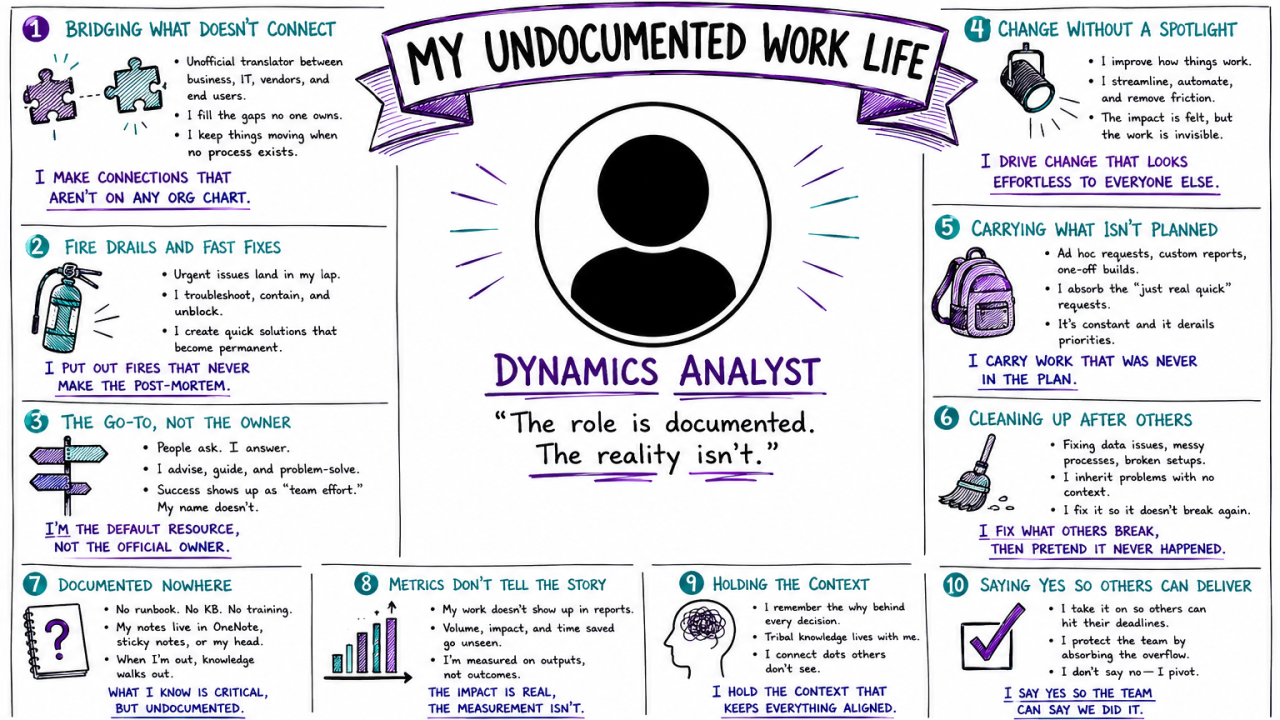 MY UNDOCUMENTED WORK LIFE
1 BRIDGING WHAT DOESN'T CONNECT
• Unofficial translator between
business, IT, vendors, and
end users.
• I fill the gaps no one owns.
• I keep things moving when
no process exists.
I MAKE CONNECTIONS THAT
AREN'T ON ANY ORG CHART.
2 FIRE DRAILS AND FAST FIXES
• Urgent issues land in my lap.
• I troubleshoot, contain, and
unblock.
• I create quick solutions that
become permanent.
I PUT OUT FIRES THAT NEVER
MAKE THE POST-MORTEM.
3 THE GO-TO, NOT THE OWNER
• People ask. I answer.
• I advise, guide, and problem-solve.
• Success shows up as "team effort."
My name doesn't.
I'M THE DEFAULT RESOURCE,
NOT THE OFFICIAL OWNER.
DYNAMICS ANALYST
"The role is documented.
The reality isn't."
4 CHANGE WITHOUT A SPOTLIGHT
• I improve how things work.
• I streamline, automate,
and remove friction.
• The impact is felt, but
the work is invisible.
I DRIVE CHANGE THAT LOOKS
EFFORTLESS TO EVERYONE ELSE.
5 CARRYING WHAT ISN'T PLANNED
• Ad hoc requests, custom reports,
one-off builds.
• I absorb the "just real quick"
requests.
• It's constant and it derails
priorities.
I CARRY WORK THAT WAS NEVER
IN THE PLAN.
6 CLEANING UP AFTER OTHERS
• Fixing data issues, messy
processes, broken setups.
• I inherit problems with no
context.
• I fix it so it doesn't break again.
I FIX WHAT OTHERS BREAK,
THEN PRETEND IT NEVER HAPPENED.
7 DOCUMENTED NOWHERE
?
• No runbook. No KB. No training.
• My notes live in OneNote,
sticky notes, or my head.
• When I'm out, knowledge
walks out.
WHAT I KNOW IS CRITICAL,
BUT UNDOCUMENTED.
8 METRICS DON'T TELL THE STORY
• My work doesn't show up in reports.
• Volume, impact, and time saved
go unseen.
• I'm measured on outputs,
not outcomes.
THE IMPACT IS REAL,
THE MEASUREMENT ISN'T.
9 HOLDING THE CONTEXT
• I remember the why behind
every decision.
• Tribal knowledge lives with me.
• I connect dots others
don't see.
I HOLD THE CONTEXT THAT
KEEPS EVERYTHING ALIGNED.
10 SAYING YES SO OTHERS CAN DELIVER
• I take it on so others can
hit their deadlines.
• I protect the team by
absorbing the overflow.
• I don't say no — I pivot.
I SAY YES SO THE TEAM
CAN SAY WE DID IT.